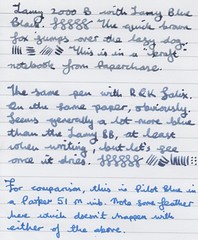 Lamy 2000 B with Lamy Blue
Black. The quick brown
fox jumps over the lazy dog.
This is in a kraft
notebook from Paperchase.
The same pen with R&K Salix.
On the same paper, obviously.
Seems generally a lot more blue
than the Lamy BB, at least
when writing, but let's see
once it dries.
For comparison, this is Pilot Blue in
a Parker 51 M nib. Note some feather
here which doesn't happen with
either of the above.